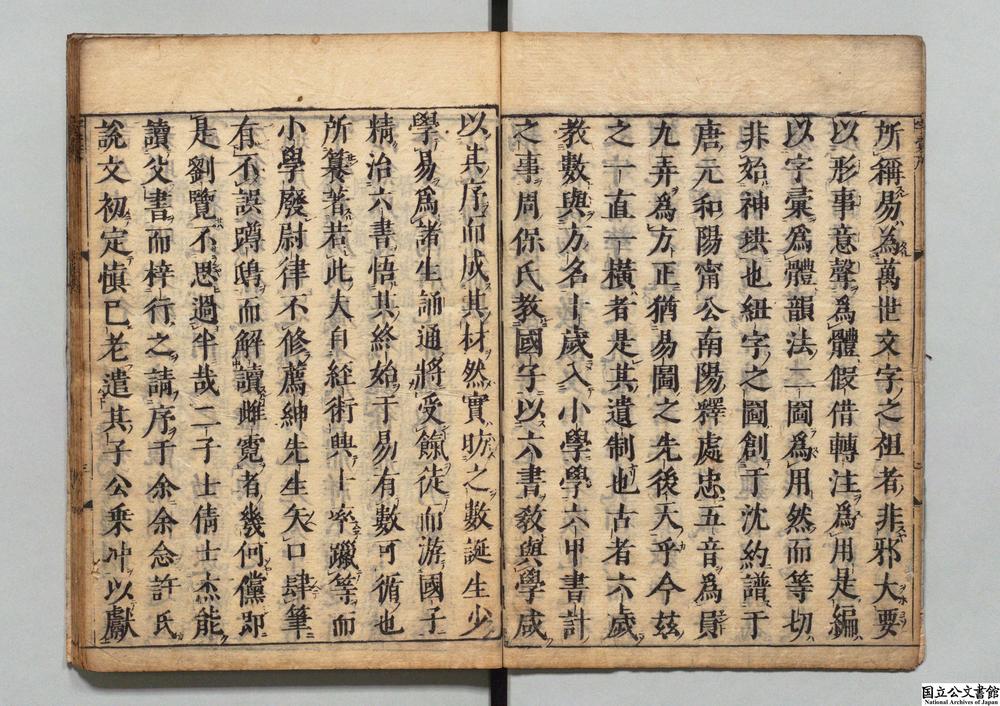 所稱易為萬世文字之祖者非邪大要
以形事意聲為體假借轉注為用是編
以字彙為體韻法二圖為用然而等切
非始神珙也紐字之圖創于沈約譜于
唐元和陽甯公南陽釋處忠五音為員
九弄為方正猶易圖之先後天乎今茲
之一直一橫者是其遺制也古者六歲
教數與方名十歲入小學學六甲書計
之事周保氏教國子以六書教與學咸
以其序而成其材然實昉之數誕生少
學易為諸生誦通將受餼徒而游國子
精治六書悟其終始于易有數可循也
所纂著若此大自經術興士率躐等而
小學廢尉律不修薦紳先生矢口肆筆
有不誤蹲鴟而解讀雌霓者幾何儻即
是劉覽不思過半哉二子士倩士杰能
讀父書而梓行之請序于余余念許氏
說文初定慎已老遣其子公乘沖以獻
国立公文書館
National Archives of Japan